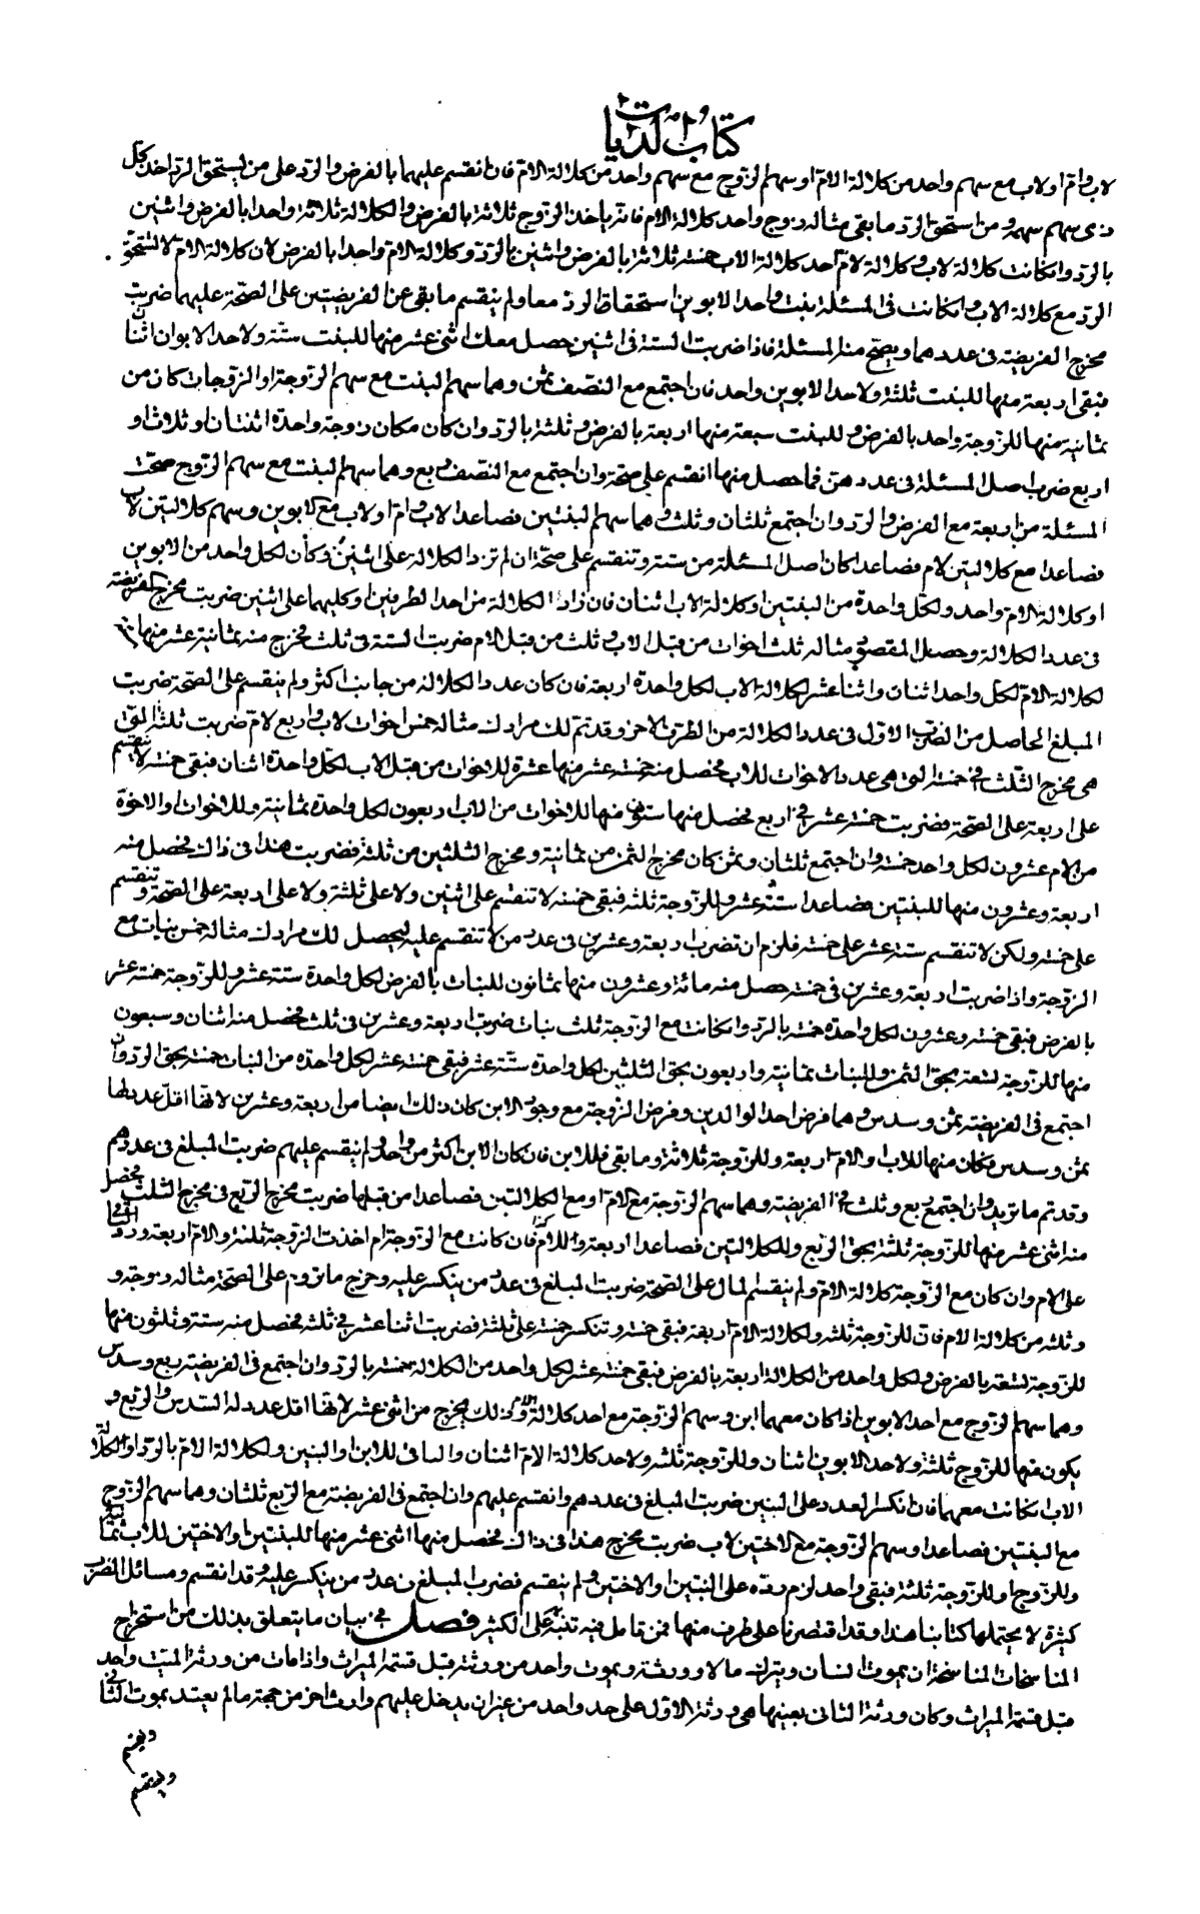 كتاب الديات
لاب وام اولاب مع سهم واحد من كلالة الام او سهم الزوج مع سهم واحد من كلالة الام فان انقسم عليهما بالفرض والرد على من يستحق الرد اخذ كل
ذى سهم سهمه ومن استحق الرد ما بقى مثاله زوج واحد كلالة الام فانه ياخذ الزوج ثلاثة بالفرض والكلالة ثلاثة واحدا بالفرض واثنين
بالرد وان كانت كلالة لاب وكلالة لام اخذ كلالة الاب خمسة ثلاثة بالفرض واثنين بالرد وكلالة الام واحدا بالفرض لان كلالة الام لا تستحق
الرد مع كلالة الاب وان كانت فى المسئلة بنت واحد الابوين استحقا الرد معا ولم ينقسم ما بقى عن الفريضتين على الصحة عليهما ضربت
مخرج الفريضة فى عددهما ويصح منه المسئلة فاذا ضربت الستة فى اثنين حصل معك اثنى عشر منها للبنت ستة ولاحد الابوان اثنان
فبقى اربعة منها للبنت ثلثة ولاحد الابوين واحد فان اجتمع مع النصف ثمن وهما سهم البنت مع سهم الزوجة او الزوجات كان من
ثمانية منها للزوجة واحد بالفرض وللبنت سبعة منها اربعة بالفرض وثلثة بالرد وان كان مكان زوجة واحدة اثنتان او ثلاث او
اربع ضرب اصل المسئلة فى عددهن فما حصل منها انقسم على صحة وان اجتمع مع النصف ربع وهما سهم البنت مع سهم الزوج صحت
المسئلة من اربعة مع الفرض والرد وان اجتمع ثلثان وثلث وهما سهم لبنتين فصاعدا لاب وام او لاب مع الابوين وسهم كلالتين لاب
فصاعدا مع كلالتين لام فصاعدا كان اصل المسئلة من ستة وتنقسم على صحة ان لم تزد الكلالة على اثنين وكان لكل واحد من الابوين
او كلالة الام واحد ولكل واحدة من البنتين او كلالة الاب اثنان فان زاد الكلالة من احد الطرفين او كليهما على اثنين ضربت مخرج الفريضة
فى عدد الكلالة وحصل المقصود مثاله ثلث اخوات من قبل الاب وثلث من قبل الام ضربت الستة فى ثلث فخرج منه ثمانية عشر منها
لكلالة الام لكل واحد اثنان واثنا عشر لكلالة الاب لكل واحدة اربعة فان كان عدد الكلالة من جانب اكثر ولم ينقسم على الصحة ضربت
المبلغ الحاصل من الضرب الاول فى عدد الكلالة من الطرف الاخر وقد تم لك مرادك مثاله خمس اخوات لاب واربع لام ضربت ثلثة التى
هى مخرج الثلث فى خمسة التى هى عدد الاخوات للاب فحصل منه خمسة عشر منها عشرة للاخوات من قبل الاب لكل واحدة اثنان فبقى خمسة لا تنقسم
على اربعة على الصحة فضربت خمسة عشر فى اربع فحصل منها ستون منها للاخوات من الاب اربعون لكل واحدة ثمانية وللاخوات او الاخوة
من الام عشرون لكل واحد خمسة وان اجتمع ثلثان وثمن كان مخرج الثمن من ثمانية ومخرج الثلثين من ثلثة فضربت هذا فى ذاك فحصل منه
اربعة وعشرون منها للبنتين فصاعدا ستة عشر وللزوجة ثلثة فبقى خمسة لا تنقسم على اثنين ولا على ثلثة ولا على اربعة على الصحة وتنقسم
على خمسة ولكن لا تنقسم ستة عشر على خمسة فلزم ان تضرب اربعة وعشرين فى عدد من لا تنقسم عليه ليحصل لك مرادك مثاله خمس بنات مع
الزوجة واذا ضربت اربعة وعشرين فى خمسة حصل منه مائة وعشرون منها ثمانون للبنات بالفرض لكل واحدة ستة عشر وللزوجة خمسة عشر
بالفرض فبقى خمسة وعشرون لكل واحدة خمسة بالرد وان كانت مع الزوجة ثلث بنات ضرب اربعة وعشرين فى ثلث فحصل منه اثنان وسبعون
منها للزوجة تسعة بحق الثمن وللبنات ثمانية واربعون بحق الثلثين لكل واحدة ستة عشر فبقى خمسة عشر لكل واحدة من البنات خمسة بحق الرد وان
اجتمع فى الفريضة ثمن وسدس وهما فرض احد الوالدين وفرض الزوجة مع وجود الابن كان ذلك ايضا من اربعة وعشرين لانها اقل عدد لها
ثمن وسدس فكان منها للاب والام اربعة وللزوجة ثلاثة وما بقى فللابن فان كان الابن اكثر من واحد ولم ينقسم عليهم ضربت المبلغ فى عددهم
وقد تم ما تريد وان اجتمع ربع وثلث فى الفريضة وهما سهم الزوجة مع الام او مع الكلالتين فصاعدا من قبلها ضربت مخرج الربع فى مخرج الثلث فحصل
منه اثنى عشر منها للزوجة ثلثة بحق الربع وللكلالتين فصاعدا اربعة وللام كذا فان كانت مع الزوجة ام اخذت الزوجة ثلثة والام اربعة ورد الباقى
على الام وان كان مع الزوجة كلالة الام ولم ينقسم المال على الصحة ضربت المبلغ فى عدد من ينكسر عليه وخرج ما تروم على الصحة مثاله زوجة و
وثلثة من كلالة الام فان للزوجة ثلثة ولكلالة الام اربعة فبقى خمسة وتنكسر خمسة على ثلثة فضربت اثنا عشر فى ثلثة فحصل منه ستة وثلثون منها
للزوجة تسعة بالفرض ولكل واحد من الكلالة اربعة بالفرض فبقى خمسة عشر لكل واحد من الكلالة خمسة بالرد وان اجتمع فى الفريضة ربع وسدس
وهما سهم الزوج مع احد الابوين اذا كان معهما ابن وسهم الزوجة مع احد كلالة الام وذلك يخرج من اثنى عشر لانها اقل عدد له السدس والربع و
يكون منها للزوج ثلثة ولاحد الابوين اثنان وللزوجة ثلثة ولاحد كلالة الام اثنان والباقى للابن او البنين ولكلالة الام بالرد او لكلالة
الاب ان كانت معهما فان انكسر العدد على البنين ضربت المبلغ فى عددهم وانقسم عليهم وان اجتمع فى الفريضة مع الربع ثلثان وهما سهم الزوج
مع البنتين فصاعدا وسهم الزوجة مع الاختين لاب ضربت مخرج هذا فى ذاك فحصل منها اثنى عشر منها للبنتين او الاختين للاب ثمانية
وللزوج او للزوجة ثلثة فبقى واحد لزم رده على البنتين او الاختين ولم ينقسم فضرب المبلغ فى عدد من ينكسر عليه وقد انقسم ومسائل الضرب
كثيرة لا يحتملها كتابنا هذا وقد اقتصرنا على طرف منها فمن تامل فيه تنبه على الكثير فصل فى بيان ما يتعلق بذلك من استخراج
المناسخات المناسخة ان يموت انسان ويترك مالا وورثة ويموت واحد من ورثته قبل قسمة الميراث واذا مات من ورثة الميت واحد
قبل قسمة الميراث وكان ورثة الثانى بعينها هى ورثة الاول على حد واحد من غير ان يدخل عليهم وارث اخر من جهة ما لم يعتد بموت الثانى
ويقسم